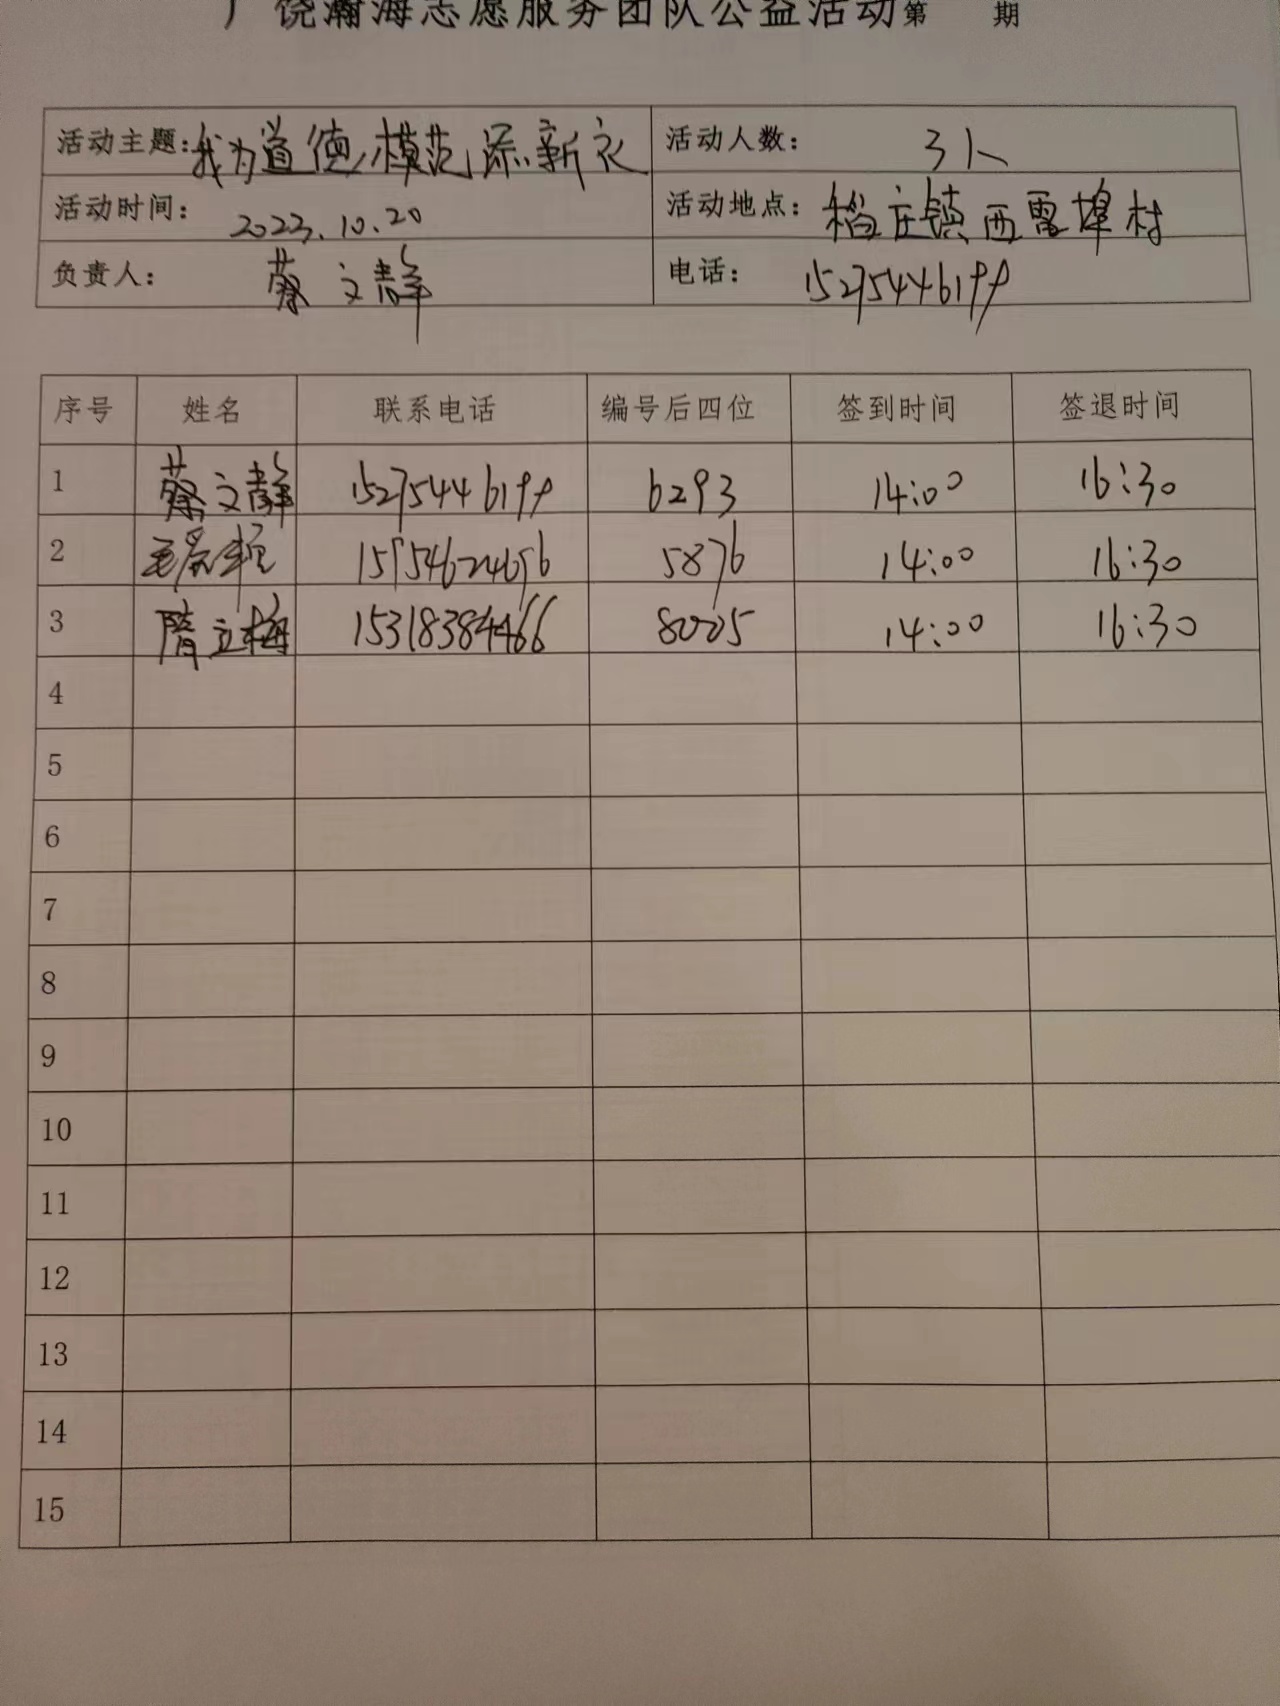 广饶瀚海志愿服务团队公益活动第 期
活动主题：我为道德模范添新衣 活动人数： 3人
活动时间： 2023.10.20 活动地点： 稻庄镇西雷埠村
负责人： 蔡文静 电话： 15275446199
序号 姓名 联系电话 编号后四位 签到时间 签退时间
1 蔡文静 15275446199 6293 14:00 16:30
2 5876 14:00 16:30
3 隋立梅 15318384466 8005 14:00 16:30
4
5
6
7
8
9
10
11
12
13
14
15